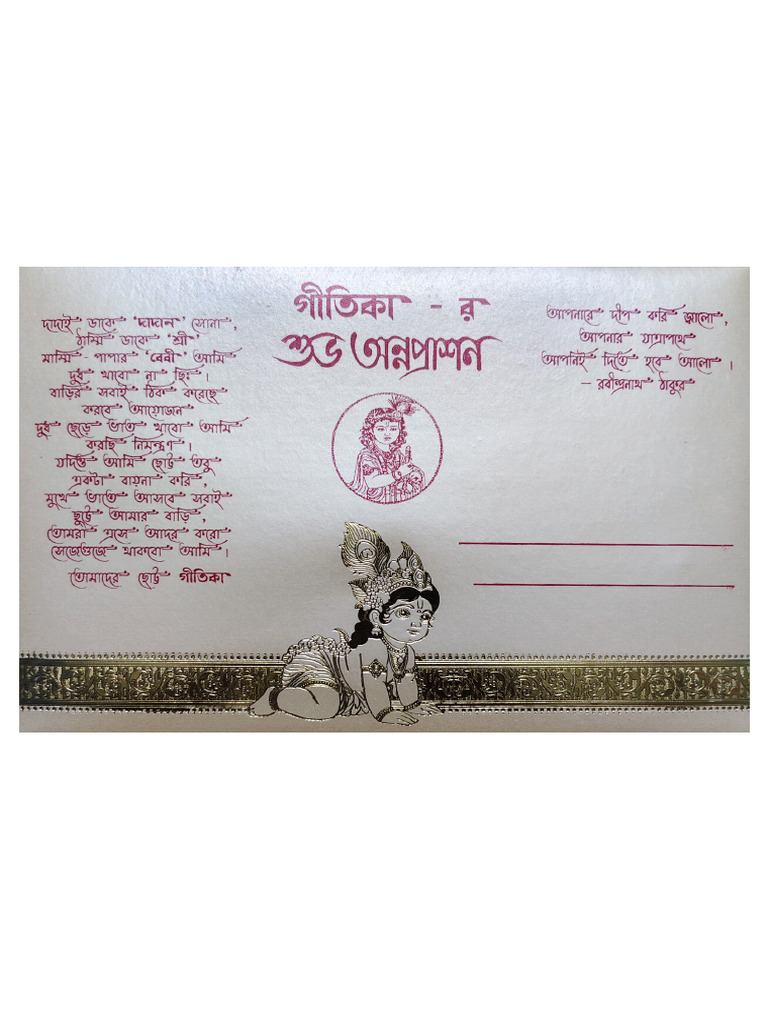 গীতিকা - র
শুভ অন্নপ্রাশন
দাদাই ডাকে 'দাদান' সোনা,
ঠাম্মি ডাকে 'শ্রী'
মাম্মি পাপার 'বেবী' আমি
দুধু খাবো না ছিঃ।
বাড়ির সবাই ঠিক করেছে
করবে আয়োজন
দুধ ছেড়ে ভাত খাবো আমি
করছি নিমন্ত্রণ।
যদিও আমি ছোট্ট তবু
একটা বায়না করি,
মুখে ভাতে আসবে সবাই
ছুট্টে আমার বাড়ি,
তোমরা এসে আদর করো
সেজেগুজে থাকবো আমি।
তোমাদের ছোট্ট গীতিকা
আপনারে দীপ করি জ্বালো,
আপনার যাত্রাপথে
আপনিই দিতে হবে আলো।
– রবীন্দ্রনাথ ঠাকুর